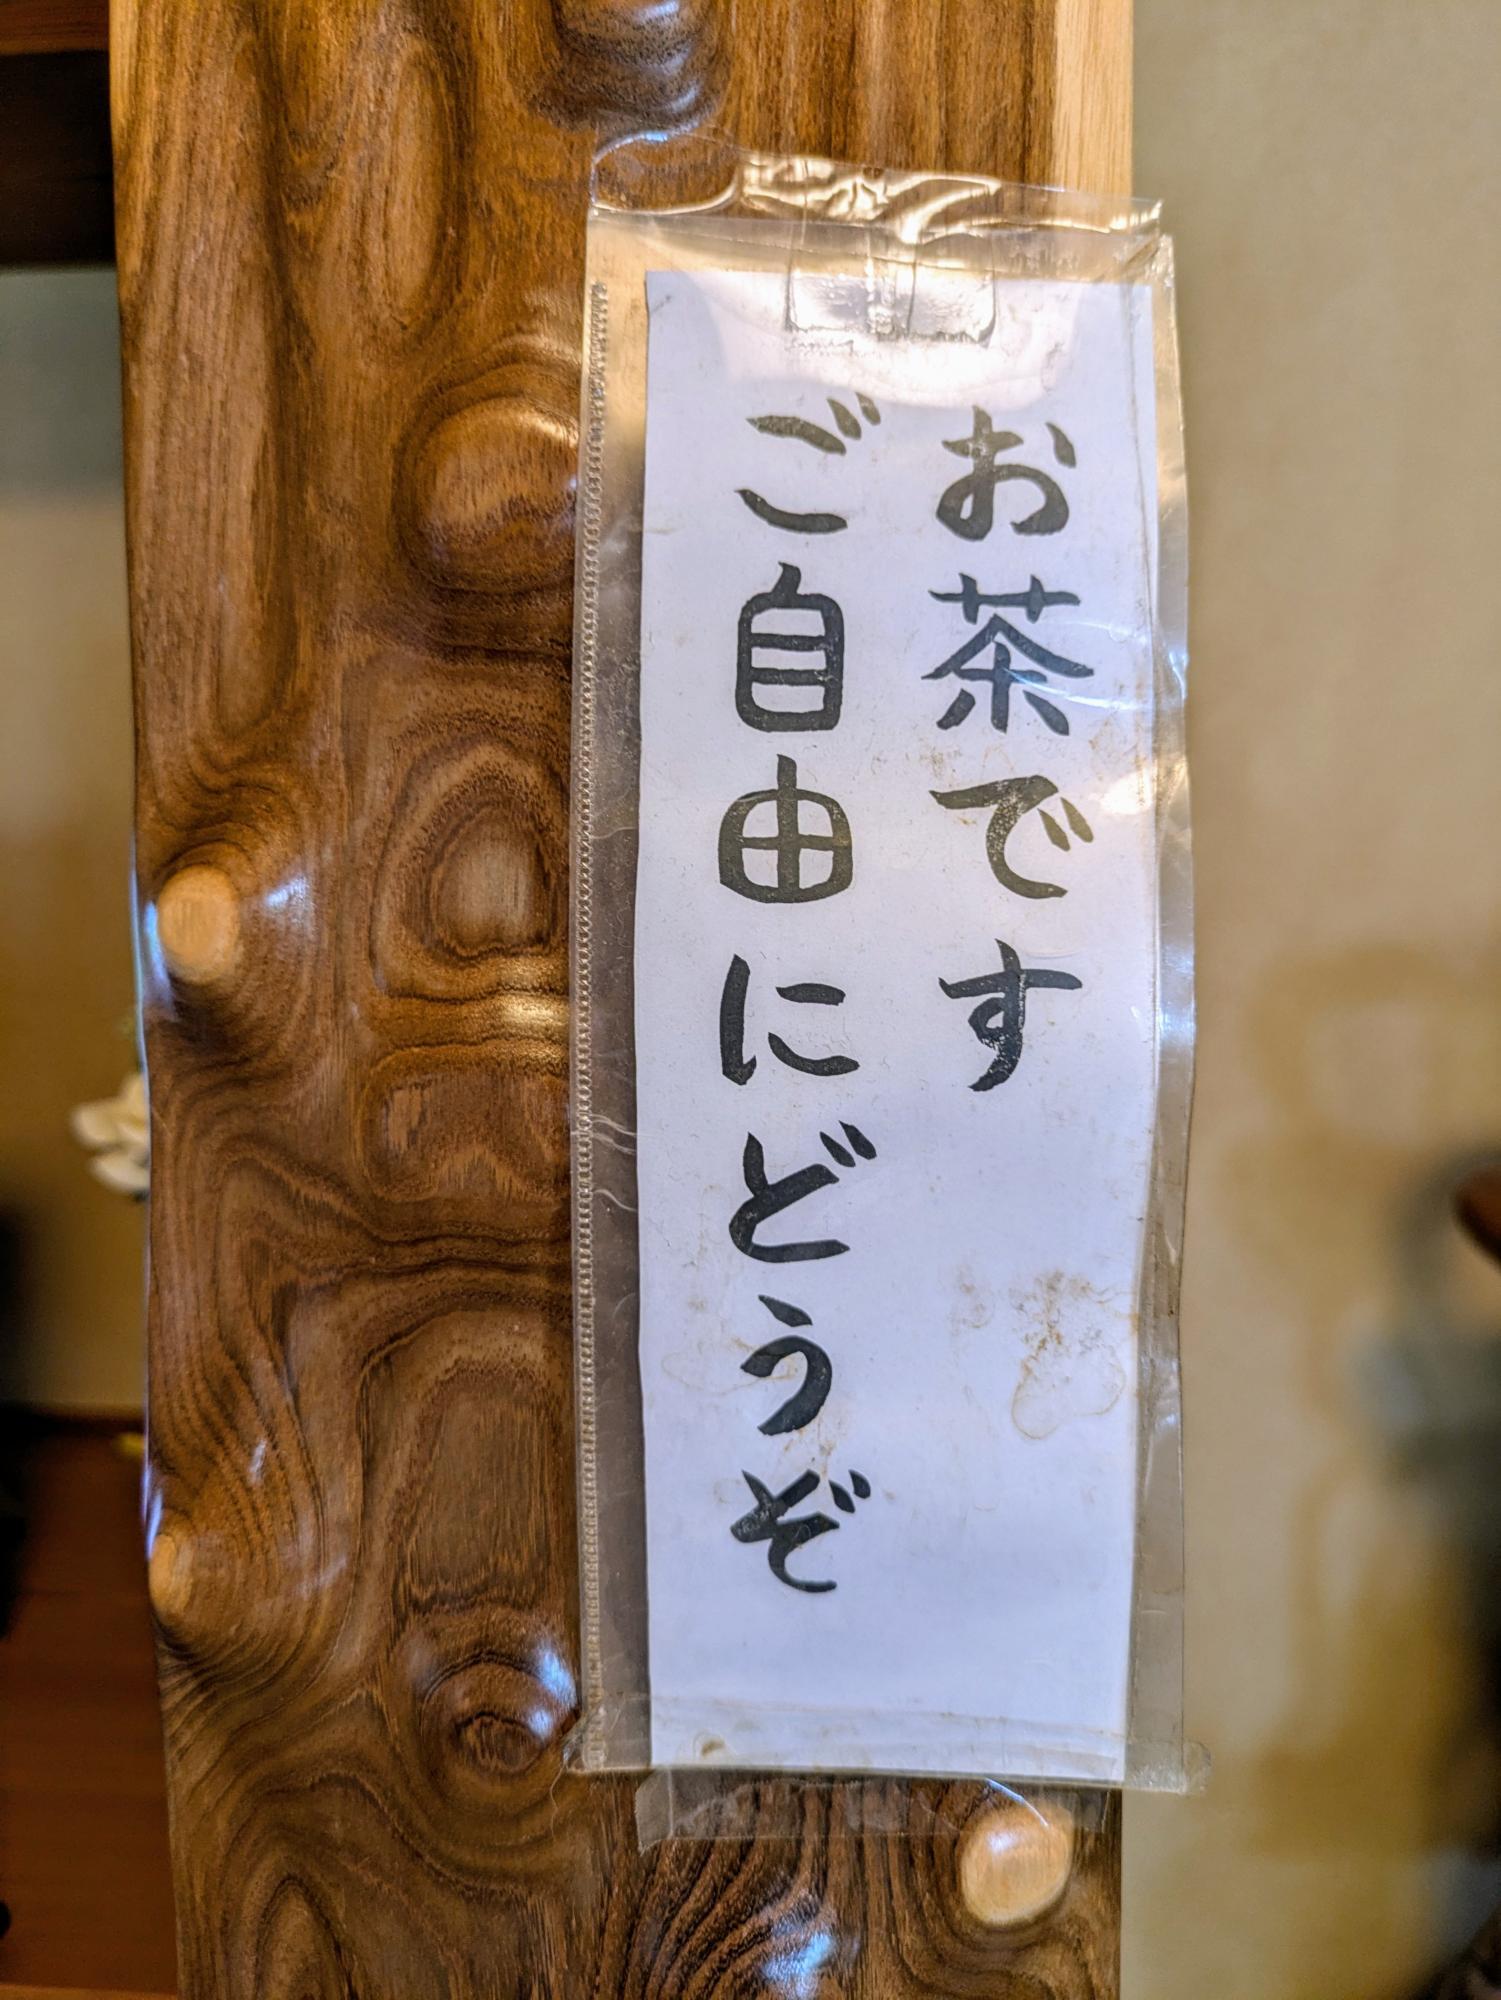 お茶です
ご自由にどうぞ